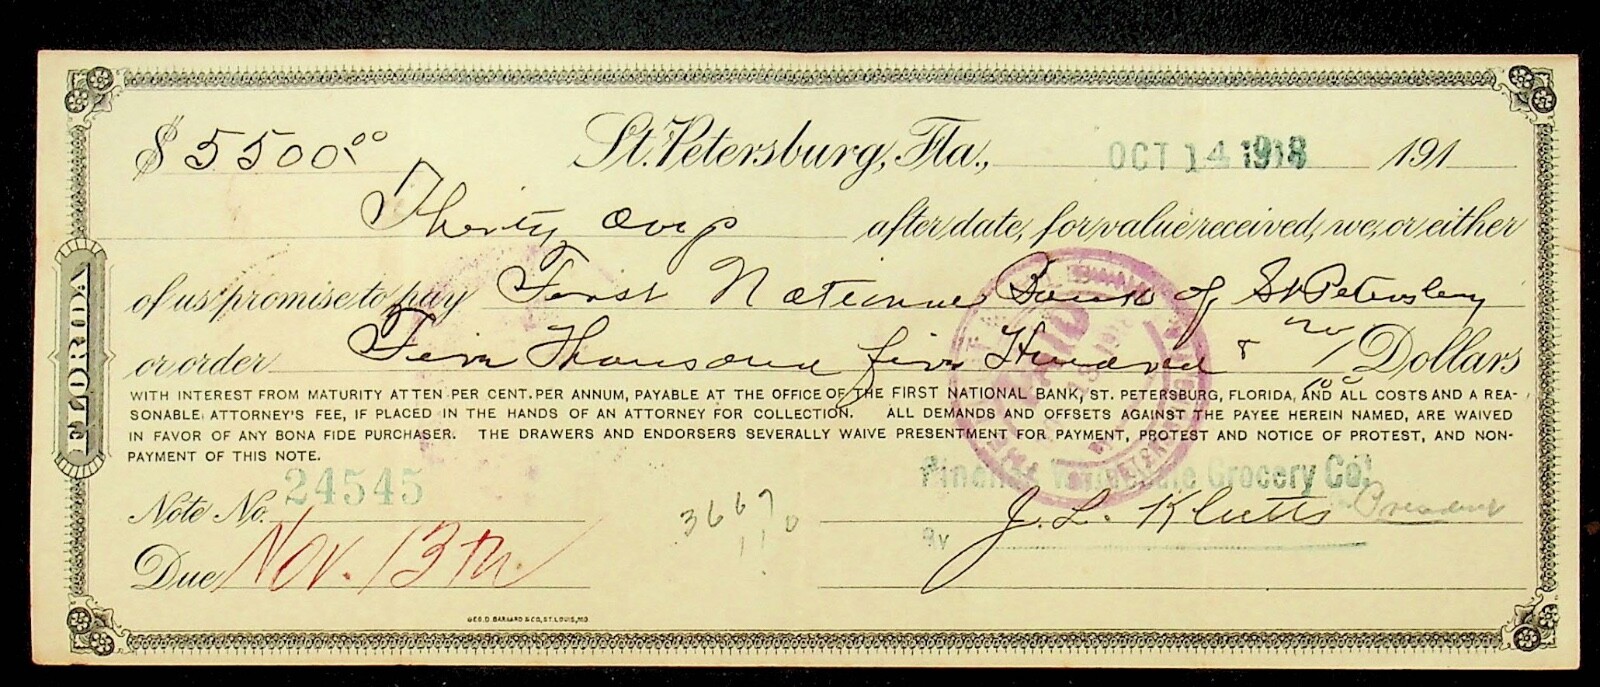 $ 5500.00 St. Petersburg, Fla., OCT 14 1918 191
Thirty days after date, for value received, we, or either
of us promise to pay First National Bank of St Petersburg
or order Five Thousand five Hundred & no/100 Dollars
WITH INTEREST FROM MATURITY AT TEN PER CENT. PER ANNUM, PAYABLE AT THE OFFICE OF THE FIRST NATIONAL BANK, ST. PETERSBURG, FLORIDA, AND ALL COSTS AND A REA-
SONABLE ATTORNEY'S FEE, IF PLACED IN THE HANDS OF AN ATTORNEY FOR COLLECTION. ALL DEMANDS AND OFFSETS AGAINST THE PAYEE HEREIN NAMED, ARE WAIVED
IN FAVOR OF ANY BONA FIDE PURCHASER. THE DRAWERS AND ENDORSERS SEVERALLY WAIVE PRESENTMENT FOR PAYMENT, PROTEST AND NOTICE OF PROTEST, AND NON-
PAYMENT OF THIS NOTE.
FLORIDA
PAID
Pinellas Wholesale Grocery Co.
Note No. 24545
J. L. Klutts President
By
Due Nov. 13th
GEO. D. BARNARD & CO, ST. LOUIS, MO